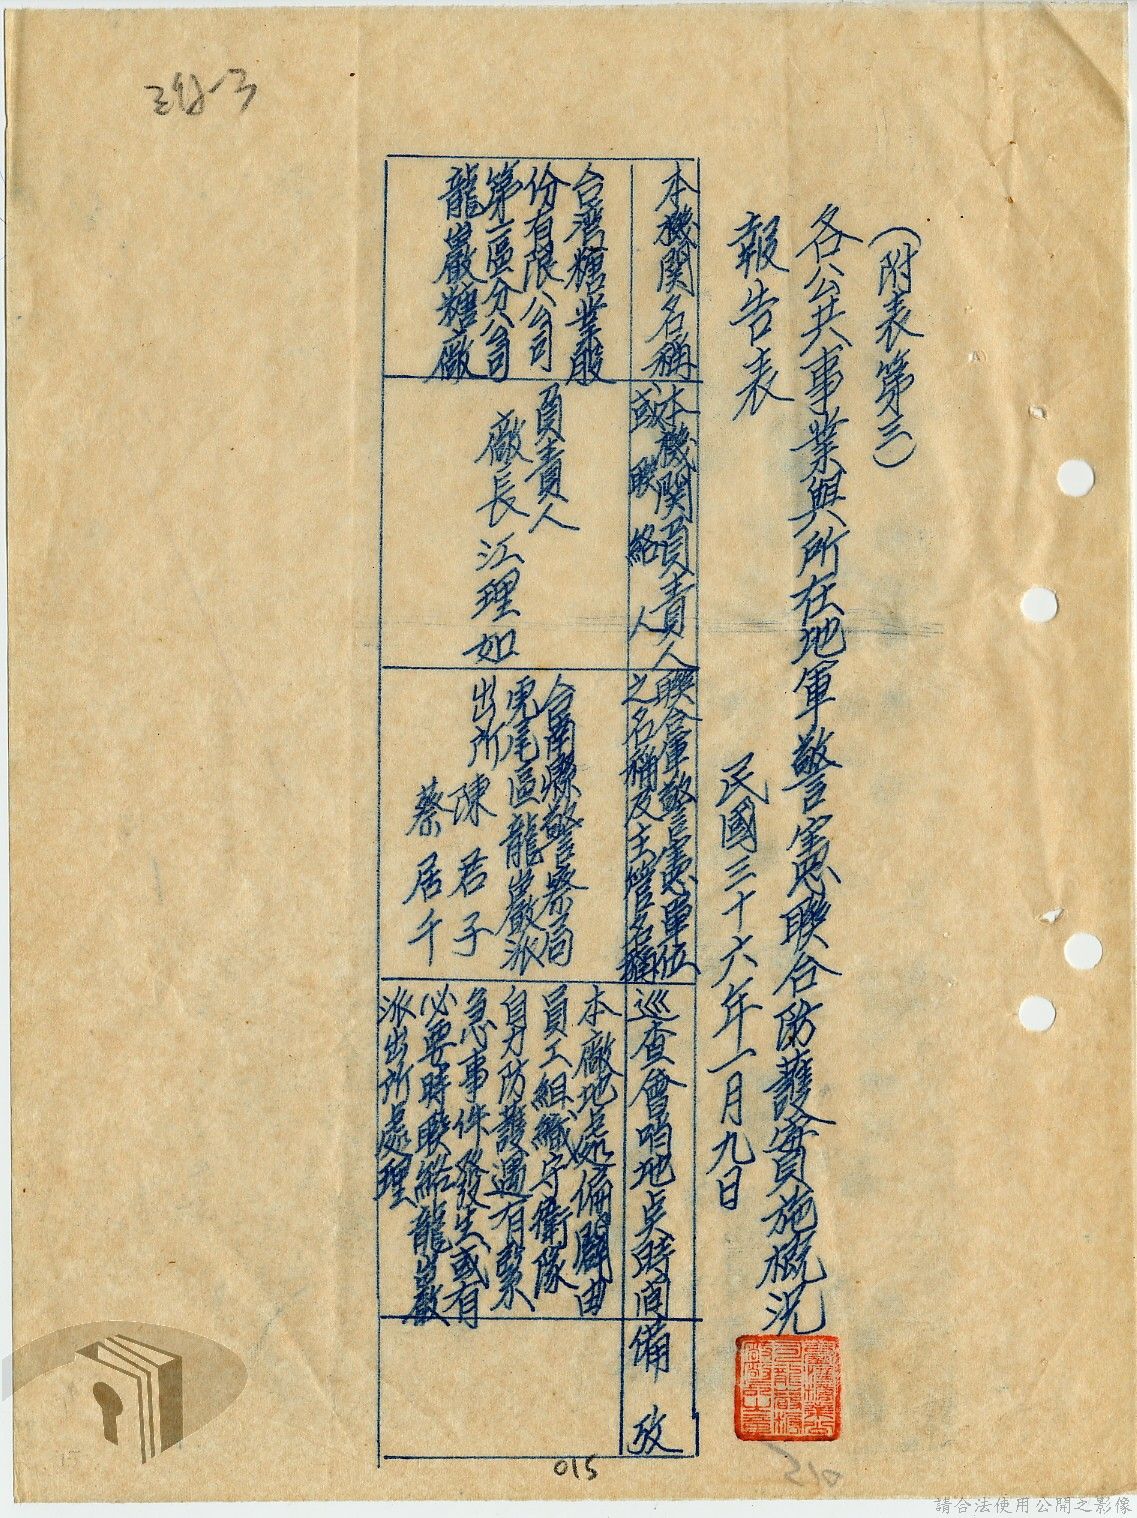 (附表第三)
各公共事業與所在地軍警憲聯合防護實施概況
報告表
民國三十六年一月九日
本機関名稱
台湾糖業股
份有限公司
第二區分公司
龍巖糖廠
本機関負責人
或聯絡人
負責人
廠長 江理如
聯合軍警憲單位
之名稱及主管名稱
台南縣警察局
虎尾區龍巖派
出所 陳君子
蔡居千
巡查會哨地点時间
本廠地處偏闢由
員工組織守衛隊
自力防護遇有緊
急事件發生或有
必要時聯絡龍巖
派出所處理
備攷
015
015
請合法使用公開之影像